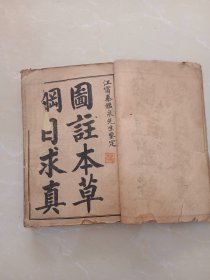 江甯秦鑑泉先生鑒定
圖註本草
綱目求真